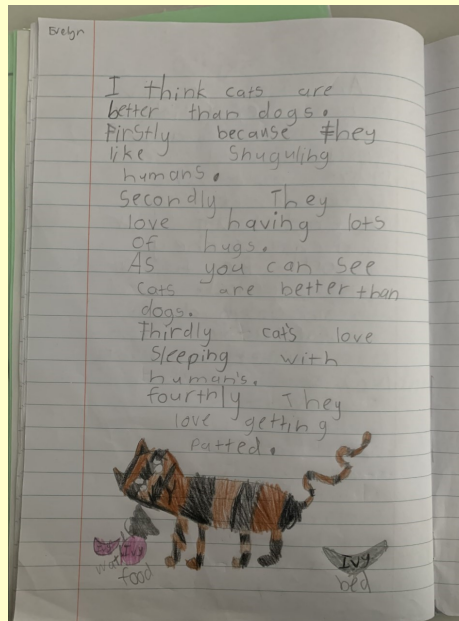 Evelyn
I think cats are
better than dogs.
Firstly because they
like Shuguling
humans.
Secondly They
love having lots
of hugs.
As you can see
cats are better than
dogs.
Thirdly cat's love
Sleeping with
human's.
fourthly They
love getting
patted.
Ivy
Ivy
food
bed